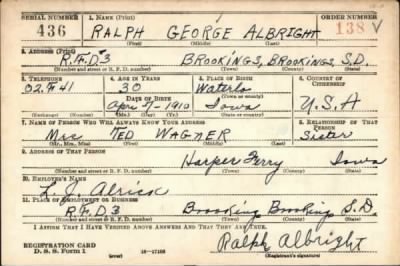 SERIAL NUMBER 1. NAME (Print) ORDER NUMBER
436 RALPH GEORGE ALBRIGHT 138 V
(First) (Middle) (Last)
2. ADDRESS (Print)
R.F.D 3 BROOKINGS, BROOKINGS, S.D.
(Number and street or R. F. D. number) (Town) (County) (State)
3. TELEPHONE 4. AGE IN YEARS 5. PLACE OF BIRTH 6. COUNTRY OF CITIZENSHIP
02 F 41 30 Waterlo
DATE OF BIRTH (Town or county)
Apr 7-1910 Iowa U.S.A
(Exchange) (Number) (Mo.) (Day) (Yr.) (State or country)
7. NAME OF PERSON WHO WILL ALWAYS KNOW YOUR ADDRESS 8. RELATIONSHIP OF THAT PERSON
Mrs TED WAGNER Sister
(Mr., Mrs., Miss) (First) (Middle) (Last)
9. ADDRESS OF THAT PERSON
Harper Ferry Iowa
(Number and street or R. F. D. number) (Town) (County) (State)
10. EMPLOYER'S NAME
L. J. Alrick
11. PLACE OF EMPLOYMENT OR BUSINESS
R.F.D 3 Brooking Brooking S.D.
(Number and street or R. F. D. number) (Town) (County) (State)
I AFFIRM THAT I HAVE VERIFIED ABOVE ANSWERS AND THAT THEY ARE TRUE.
REGISTRATION CARD
D. S. S. Form 1 Ralph Albright
(Registrant's signature)